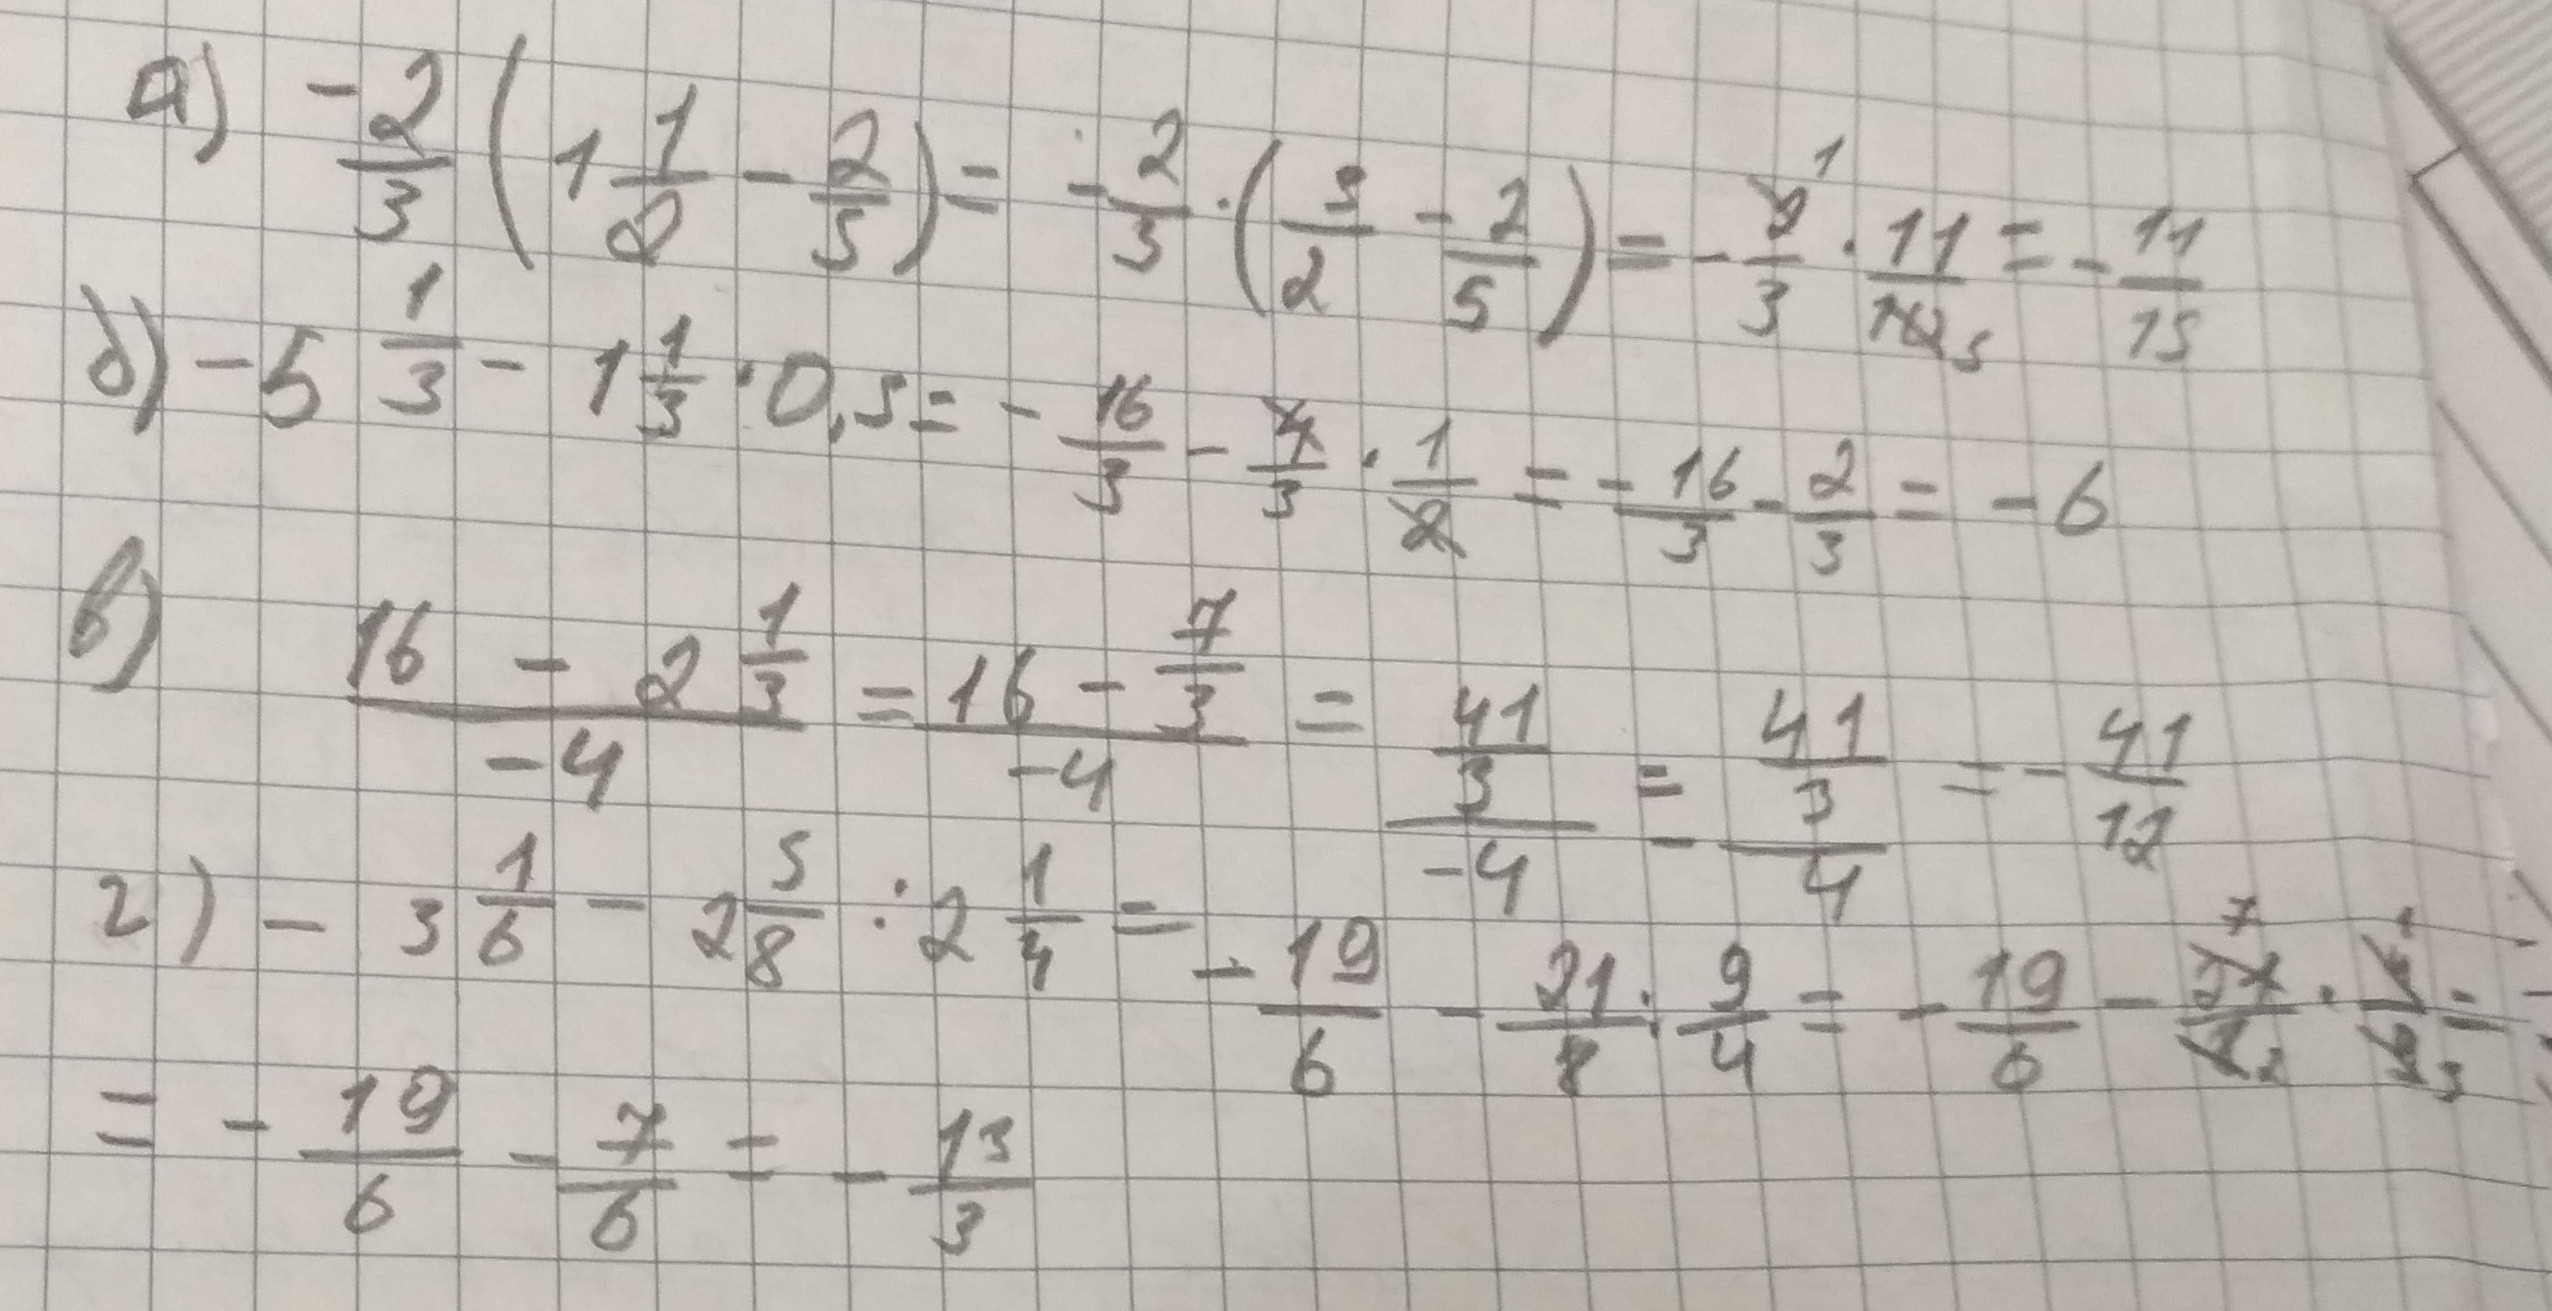 а) -2/3 (1 1/2 - 2/5) = -2/3 · (3/2 - 2/5) = -2/3 1 · 11/10 5 = -11/15
б) -5 1/3 - 1 1/3 · 0,5 = -16/3 - 4/3 · 1/2 = -16/3 - 2/3 = -6
в) (16 - 2 1/3)/-4 = (16 - 7/3)/-4 = (41/3)/-4 = -(41/3)/4 = -41/12
г) -3 1/6 - 2 5/8 : 2 1/4 = -19/6 - 21/8 : 9/4 = -19/6 - 21 7/8 2 · 4 1/9 3 =
= -19/6 - 7/6 = -13/3